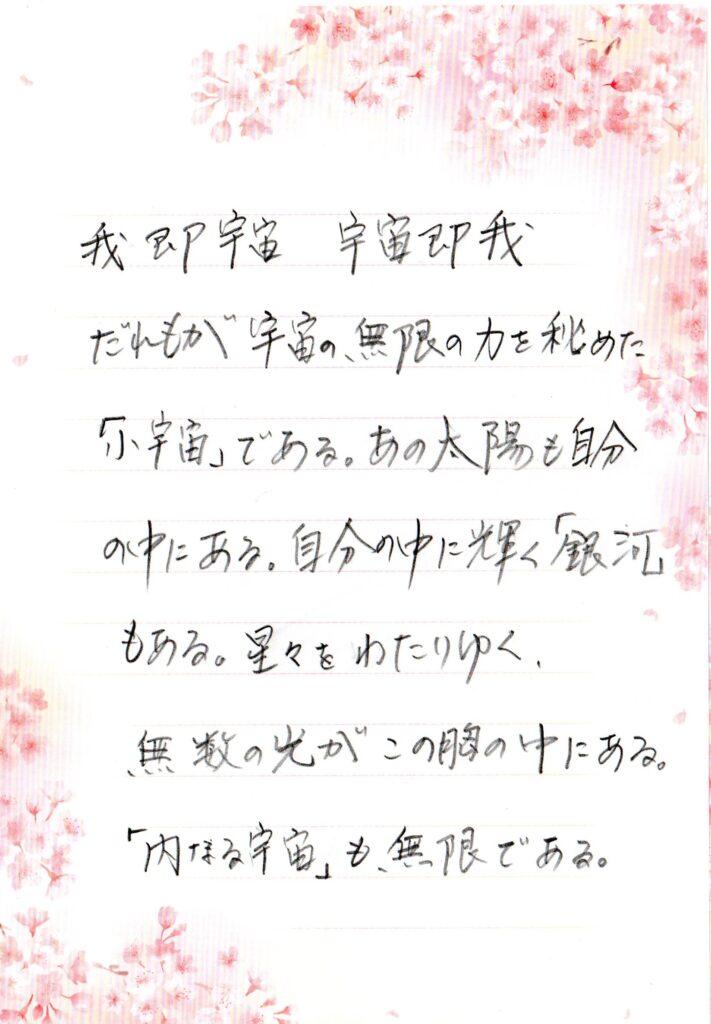 我即宇宙　宇宙即我
だれもが宇宙の無限の力を秘めた
「小宇宙」である。あの太陽も自分
の中にある。自分の中に輝く「銀河」
もある。星々をわたりゆく、
無数の光がこの胸の中にある。
「内なる宇宙」も無限である。